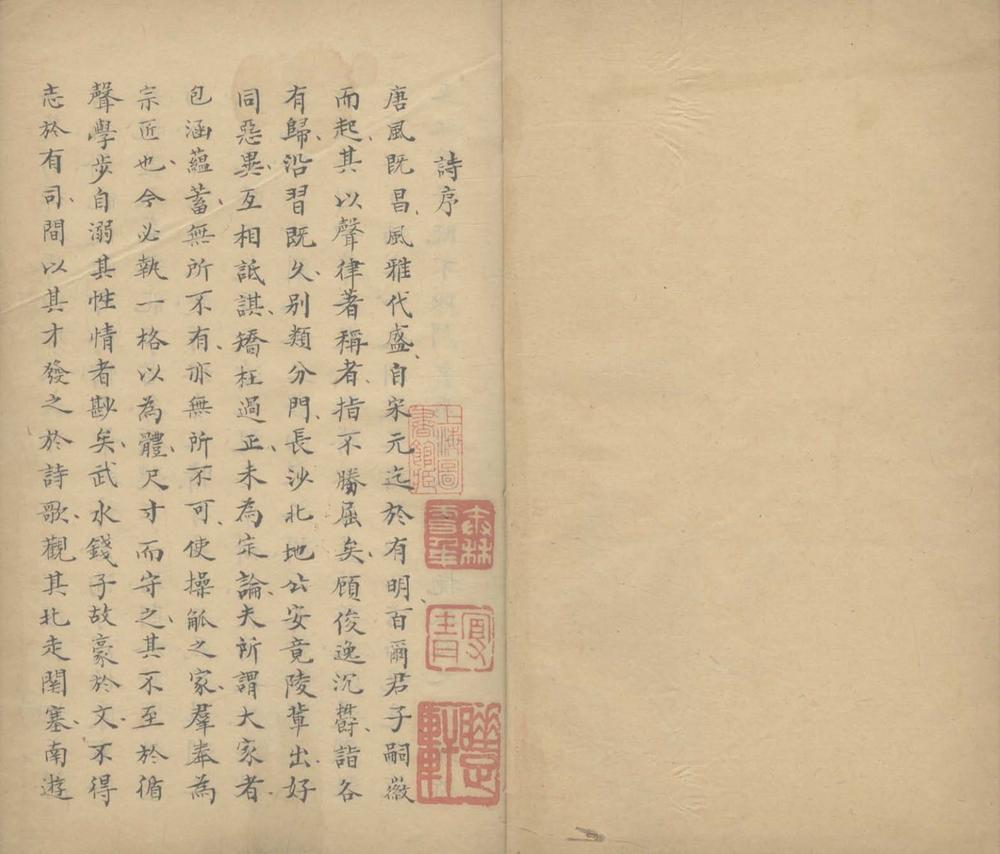 詩序
唐風既昌、風雅代盛、自宋元迄於有明、百爾君子嗣徽
而起、其以聲律著稱者、指不勝屈矣、顧俊逸沉欝、詣各
有歸、沿習既久、別類分門、長沙北地公安竟陵軰出、好
同惡異、互相詆諆、矯枉過正、未為定論、夫所謂大家者、
包涵蘊蓄、無所不有、亦無所不可、使操觚之家、羣奉為
宗匠也、今必執一格以為體、尺寸而守之、其不至於循
聲學步自溺其性情者尠矣、武水錢子故豪於文、不得
志於有司、間以其才發之於詩歌、觀其北走關塞、南遊
上海圖書館藏